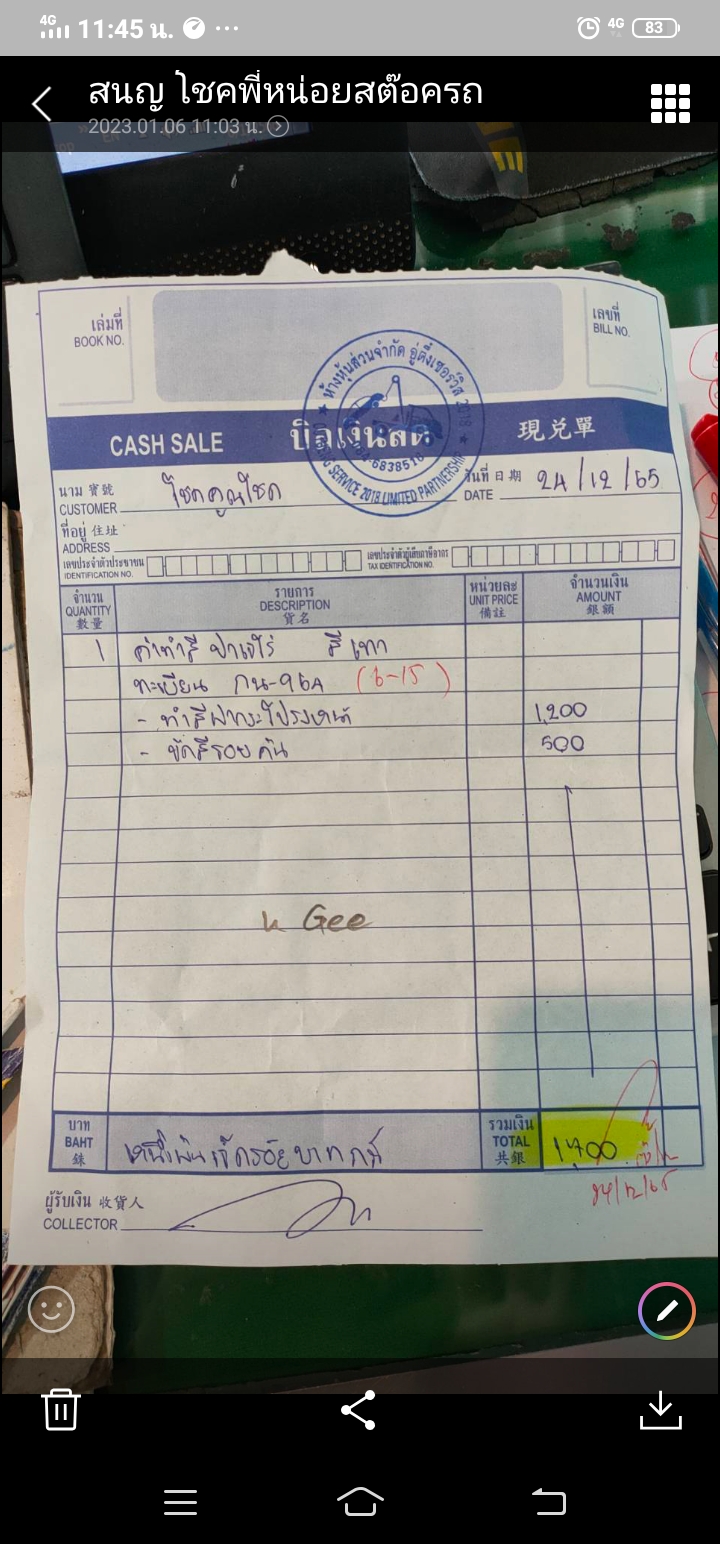 4G 11:45 น. 4G 83
สนญ โชคพี่หน่อยสต๊อครถ
2023.01.06 11:03 น.
เล่มที่
BOOK NO.
เลขที่
BILL NO.
ห้างหุ้นส่วนจำกัด อู่ติ่งเซอร์วิส 2018
SERVICE 2018 LIMITED PARTNERSHIP
CASH SALE บิลเงินสด 現兌單
นาม 寶號
CUSTOMER โชคคูณโชค
วันที่ 日期
DATE 24/12/65
ที่อยู่ 住址
ADDRESS
เลขประจำตัวประชาชน
IDENTIFICATION NO.
เลขประจำตัวผู้เสียภาษีอากร
TAX IDENTIFICATION NO.
จำนวน
QUANTITY
數量
รายการ
DESCRIPTION
貨名
หน่วยละ
UNIT PRICE
備註
จำนวนเงิน
AMOUNT
銀額
1 ค่าทำสี ปาเจโร่ สีเทา
ทะเบียน กน-96A (6-15)
- ทำสีฝากระโปรงหน้า 1,200
- ขัดสีรอบคัน 500
Gee
บาท
BAHT
銖
หนึ่งพันเจ็ดร้อยบาทถ้วน
รวมเงิน
TOTAL
共銀
1,700
24/12/65
ผู้รับเงิน 收貨人
COLLECTOR